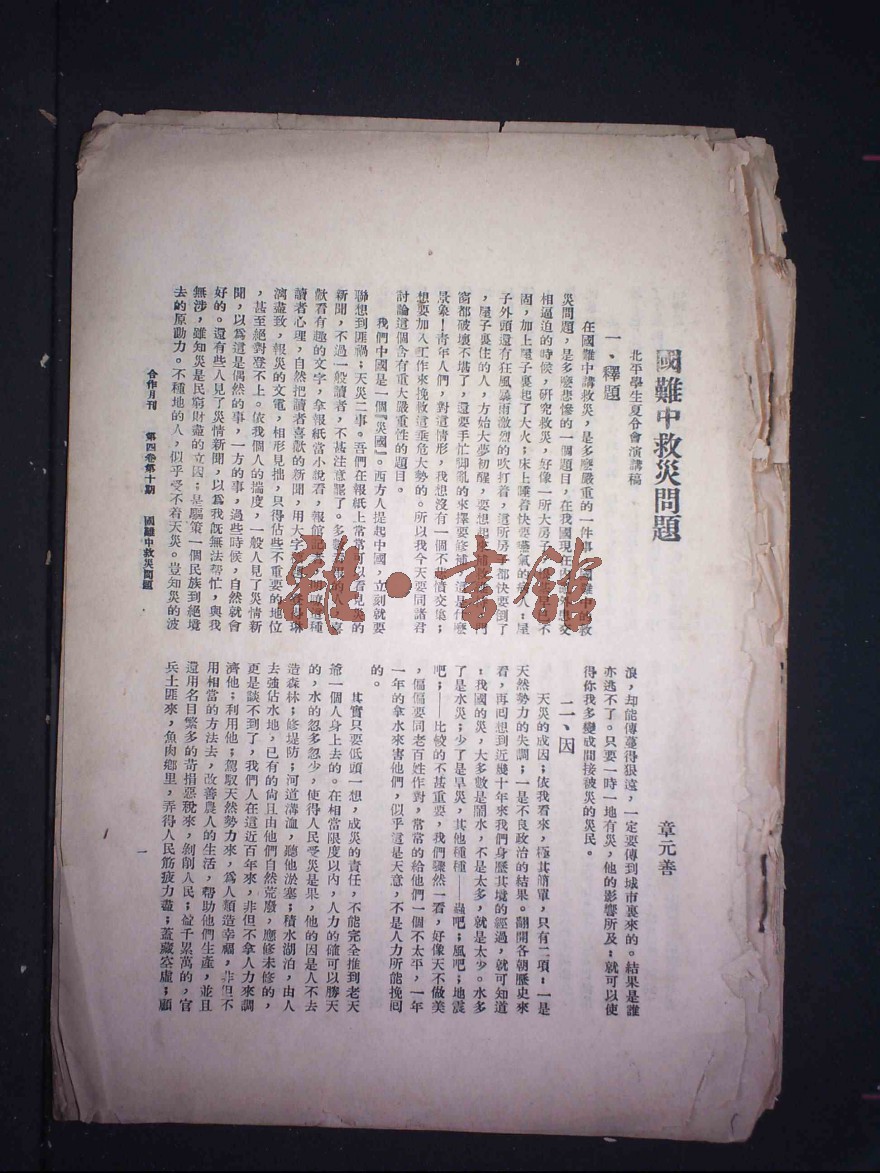 國難中救災問題
北平學生夏令會演講稿
章元善
一、釋題
在國難中講救災，是多麽嚴重的一件事
災問題，是多麽悲慘的一個題目，在我國現在
相逼迫的時候，研究救災，好像一所大房子
固，加上屋子裏起了大火；床上睡着快要斷氣的病人；屋
子外頭還有狂風暴雨激烈的吹打着，這所房子都快要倒了
，屋子裏住的人，方始大夢初醒，要想起
窗都破壞不堪了，還要手忙脚亂的來擇要修補
景象！青年人們，對這情形，我想沒有一個不悲憤交集；
想要加入工作來挽救這垂危大勢的。所以我今天要同諸君
討論這個含有重大嚴重性的題目。
我們中國是一個『災國』。西方人提起中國，立刻就要
聯想到匪禍；天災二事。吾們在報紙上常常可以看見災的
新聞，不過一般讀者，不甚注意罷了。多數
歡看有趣的文字，拿報紙當小說看，報館記者
讀者心理，自然把讀者喜歡的新聞，用大字
漓盡致，報災的文電，相形見拙，只得佔些不重要的地位
，甚至絕對登不上。依我個人的揣度，一般人見了災情新
聞，以爲這是偶然的事，一方的事，過些時候，自然就會
好的。還有些人見了災情新聞，以爲我旣無法幫忙，與我
無涉，雖知災是民窮財盡的立因；是驅策一個民族到絕境
去的原動力。不種地的人，似乎受不着天災。豈知災的波
浪，却能傳蔓得狠遠，一定要傳到城市裏來的。結果是誰
亦逃不了。只要一時一地有災，他的影響所及；就可以使
得你我多變成間接被災的災民。
二、因
天災的成因；依我看來，極其簡單，只有二項：一是
天然勢力的失調；一是不良政治的結果。翻開各朝歷史來
看，再囘想到近幾十年來我們身歷其境的經過，就可知道
：我國的災，大多數是鬧水，不是太多，就是太少。水多
了是水災；少了是旱災，其他種種——蟲吧；風吧；地震
吧；——比較的不甚重要，我們驟然一看，好像天不做美
，偏偏要同老百姓作對，常常的給他們一個不太平，一年
一年的拿水來害他們，似乎這是天意，不是人力所能挽囘
的。
其實只要低頭一想，成災的責任，不能完全推到老天
爺一個人身上去的。在相當限度以內，人力的確可以勝天
的，水的忽多忽少，使得人民受災是果，他的因是人不去
造森林；修堤防；河道溝洫，聽他淤塞；積水湖泊，由人
去強佔水地，已有的尙且由他們自然荒廢，應修未修的，
更是談不到了，我們人在這近百年來，非但不拿人力來調
濟他；利用他；駕馭天然勢力來，爲人類造幸福，非但不
用相當的方法去，改善農人的生活，帮助他們生產，並且
還用名目繁多的苛捐惡稅來，剝削人民；盈千累萬的，官
兵土匪來，魚肉鄉里，弄得人民筋疲力盡；蓋藏空虛；顧
合作月刊　第四卷第十期　國難中救災問題
一
雜·書館